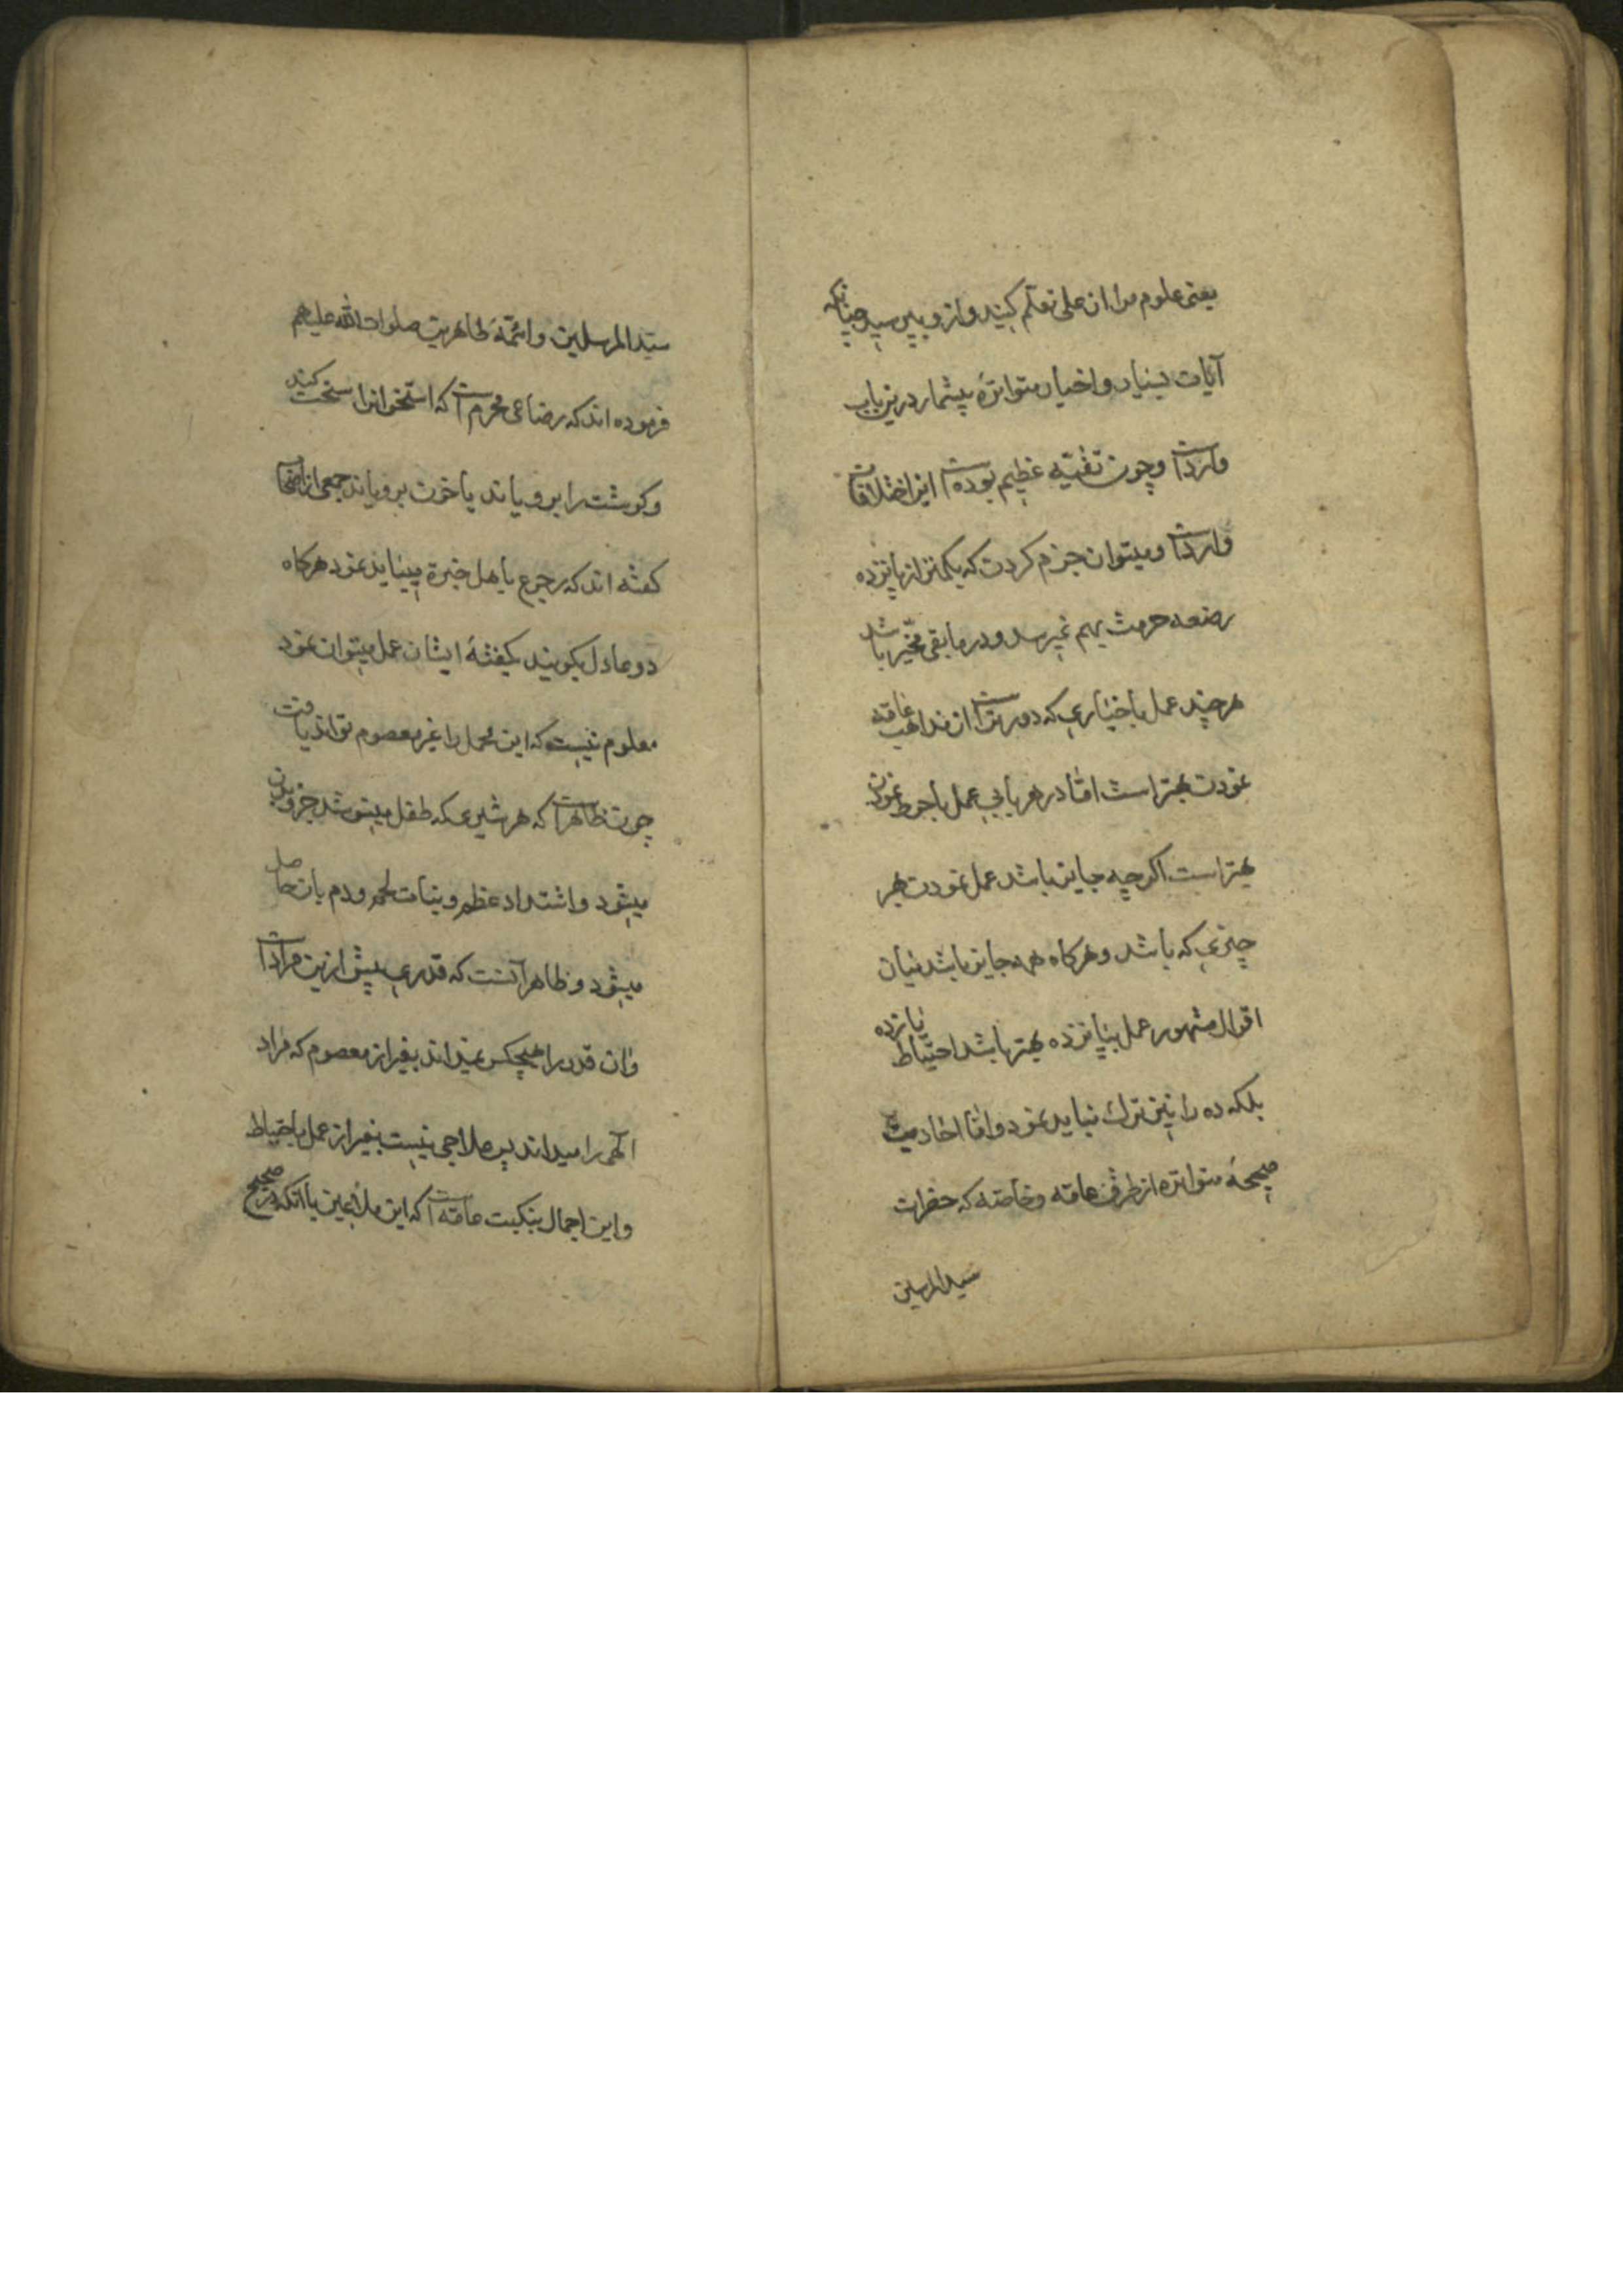 یعنی علوم مرا از علی تعلم کنید و ازو بپرسید چنانکه
آیات بسیار و اخبار متواتره بیشمار درین باب
وارداست و چون تقیه عظیم بوده است این اختلافات
وارداست و میتوان جزم کردن که بکمتر از پانزده
رضعه حرمت بهم نمیرسد و در مابقی مخیر باشد
هر چند عمل باخباری که دورتر است از مذاهب عامه
نمودن بهتر است اما در هر بابی عمل باحوط نمودن
بهتر است اگر چه جایز باشد عمل نمودن بهر
چیزی که باشد و هرگاه همه جایز باشد میان
اقوال مشهور عمل بپانزده بهتر باشد احتیاط یازده
بلکه ده را نیز ترک نباید نمود و اما احادیث
صحیحهٔ متواتره از طرق عامه و خاصه که حضرات
سید المرسلین
سید المرسلین و ائمهٔ طاهرین صلوات الله علیهم
فرموده اند که رضاعی محرم است که استخوانرا سخت کند
و گوشت را برویاند یا خون برویاند جمعی از اصحاب
گفته اند که رجوع باهل خبرة میباید نمود هرگاه
دو عادل بگویند بگفتهٔ ایشان عمل میتوان نمود
معلوم نیست که این مجمل را غیر معصوم تواند یافت
چون ظاهر است که هر شیری که طفل مینوشد جزو بدن
میشود و اشتداد عظم و نبات لحم و دم بان حاصل
میشود و ظاهر آنست که قدری بیش ازین مراد است
و ان قدر را هیچکس نمیداند بغیر از معصوم که مراد
الهی را میداند پس علاجی نیست بغیر از عمل باحتیاط
و این اجمال بنکبت عامه است که این ملاعین با انکه در صحیح